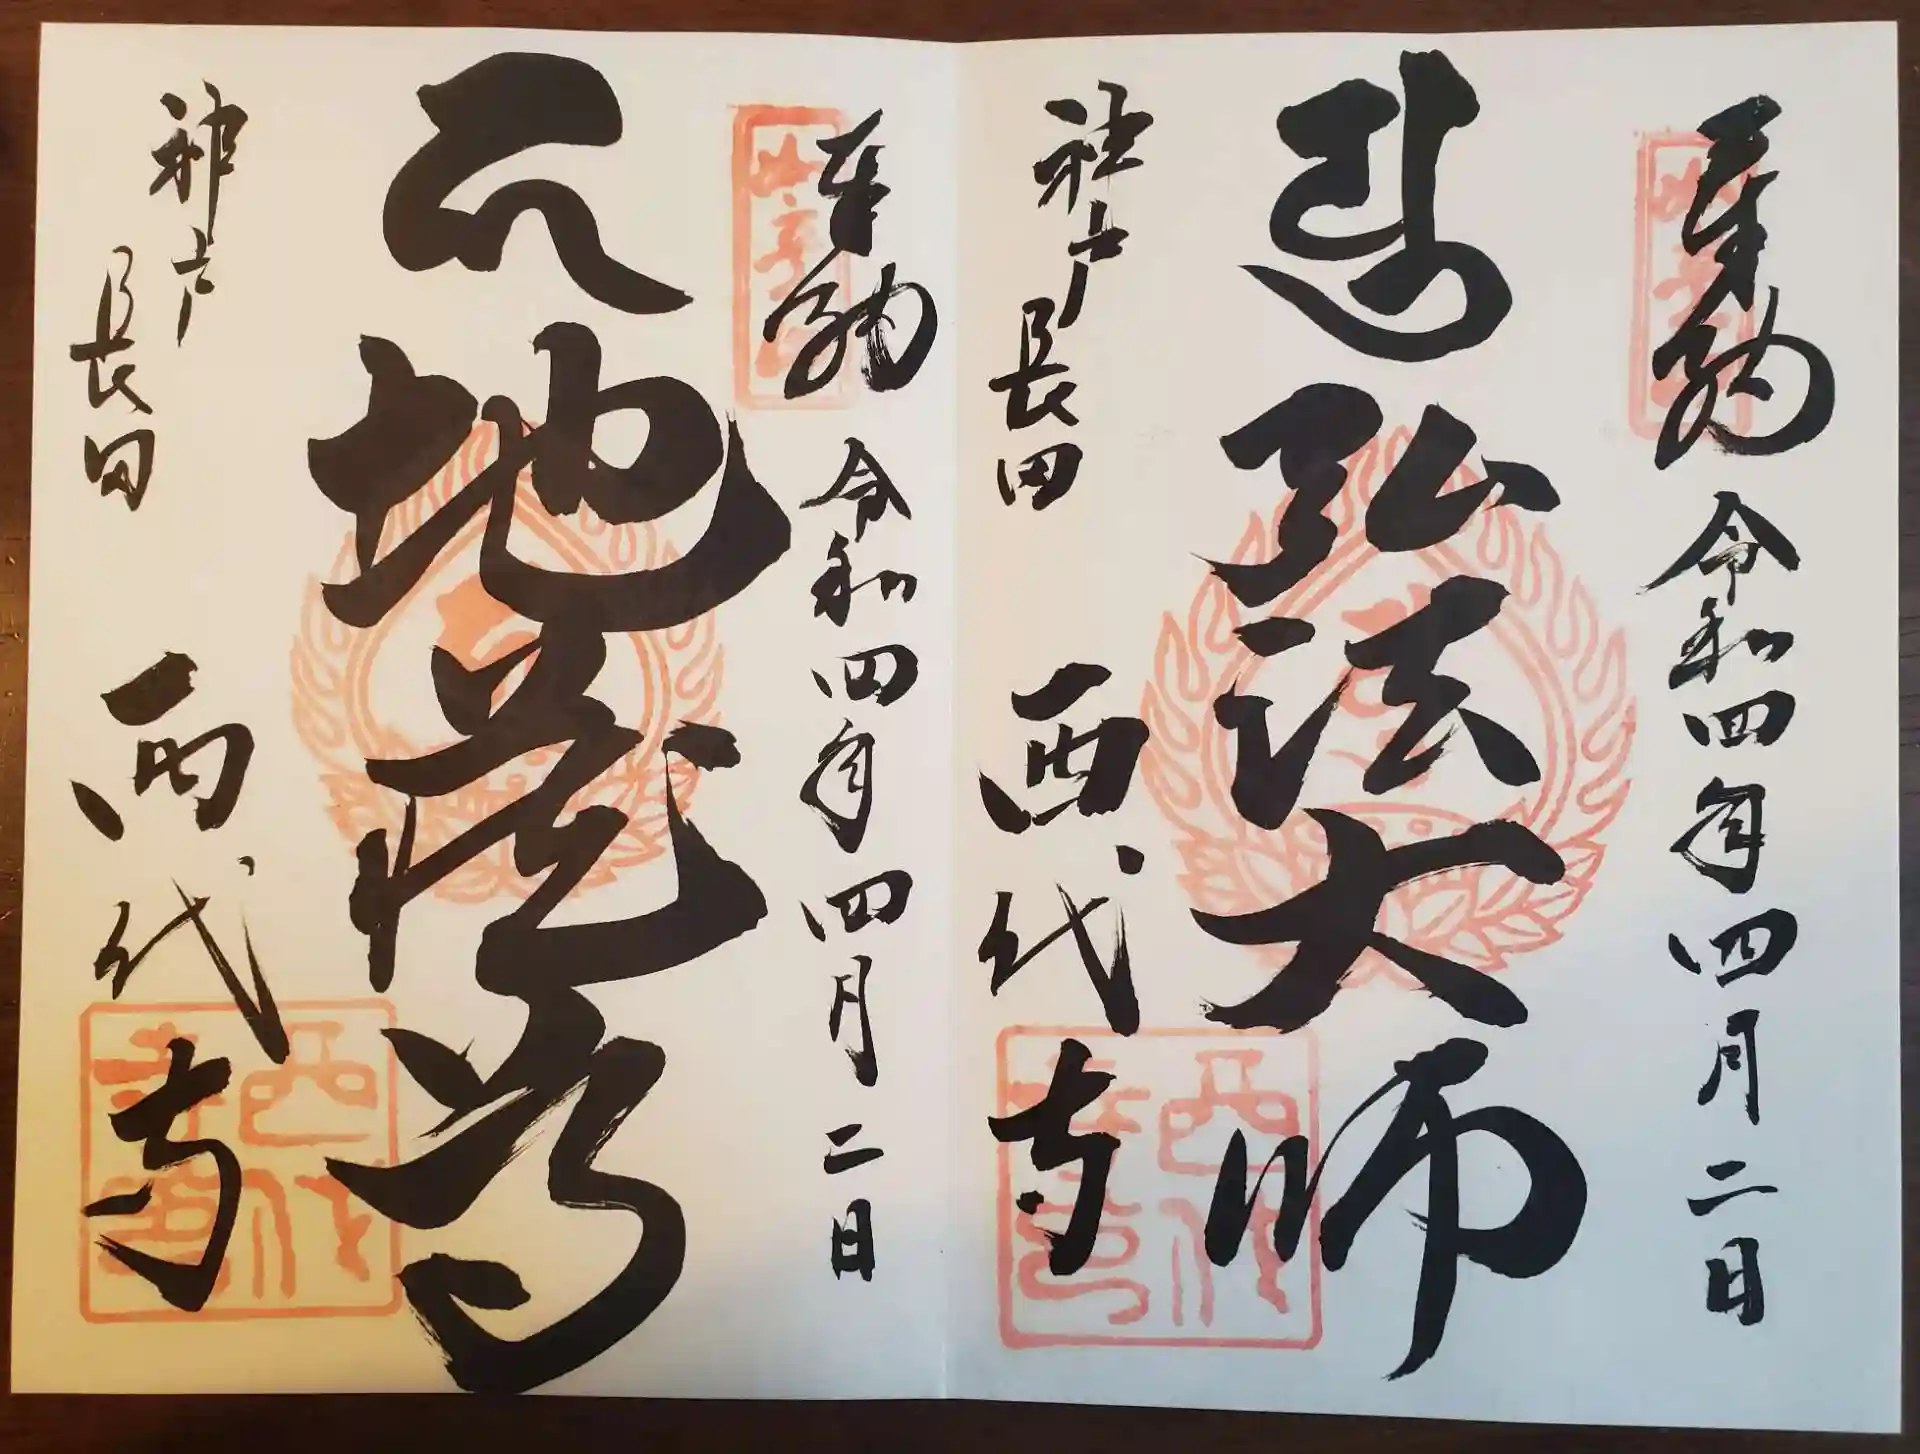 奉納
令和四年四月二日
弘法大師
神戸長田
西代寺
西代
奉納
令和四年四月二日
地蔵尊
神戸長田
西代寺
西代